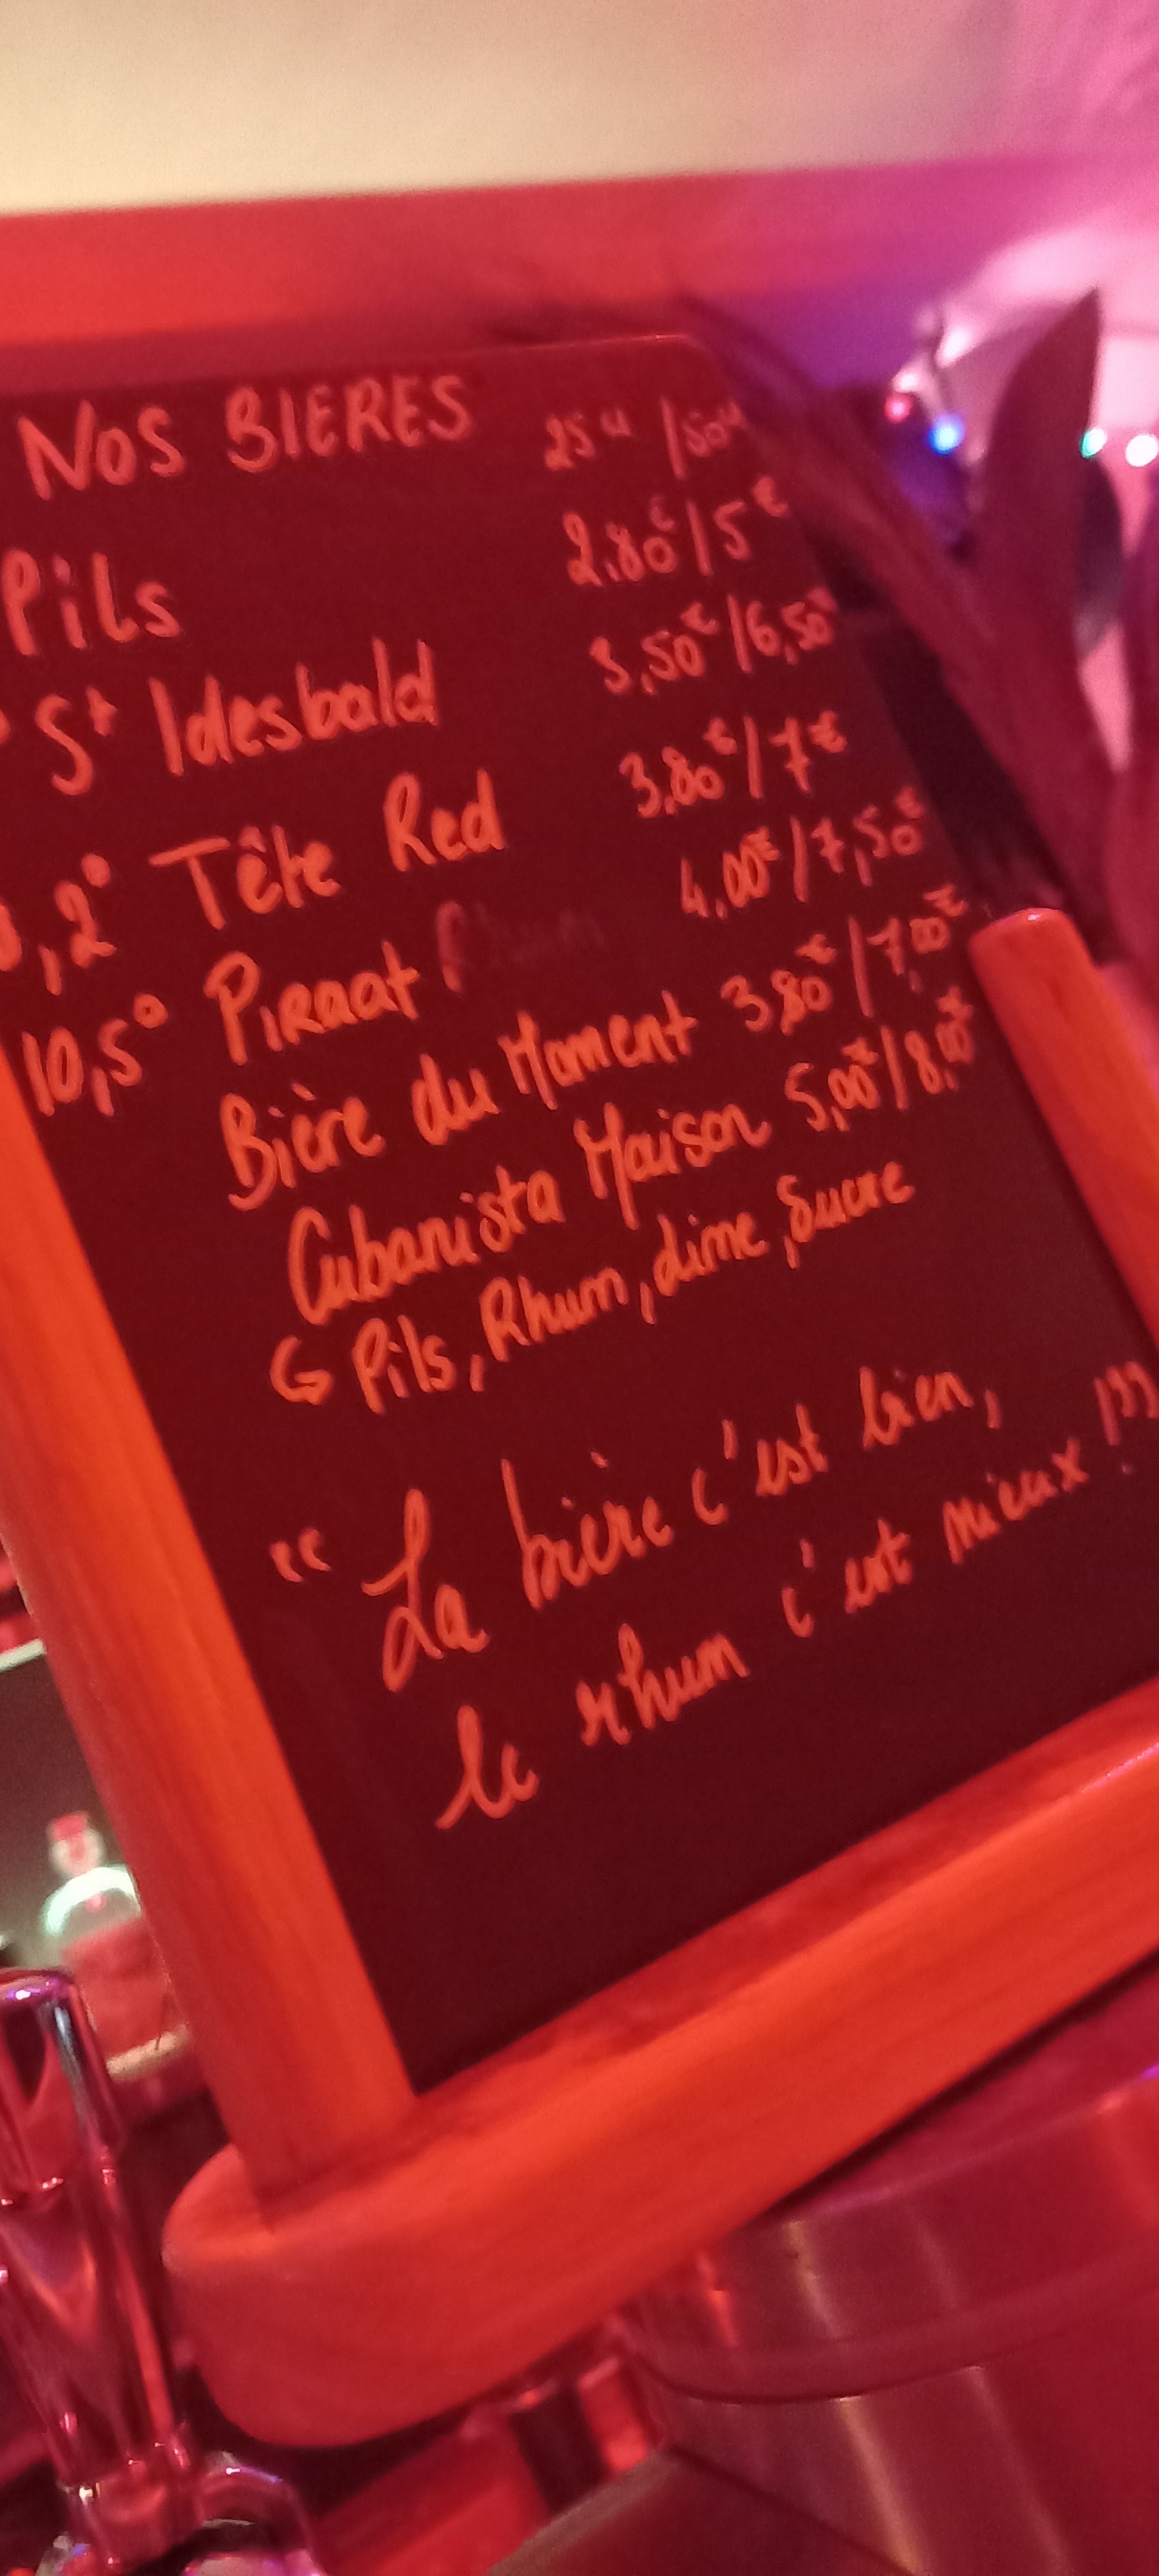 NOS BIERES 25cl /50cl
Pils 2.80€/5€
° St Idesbald 3,50€/6,50€
,2° Tête Red 3.80€/7€
10,5° Piraat Rhum 4,00€/7,50€
Bière du Moment 3,80€/7,00€
Cubanista Maison 5,00€/8,00€
↳ Pils, Rhum, lime, Sucre
“ La bière c'est bien,
le rhum c'est mieux !”